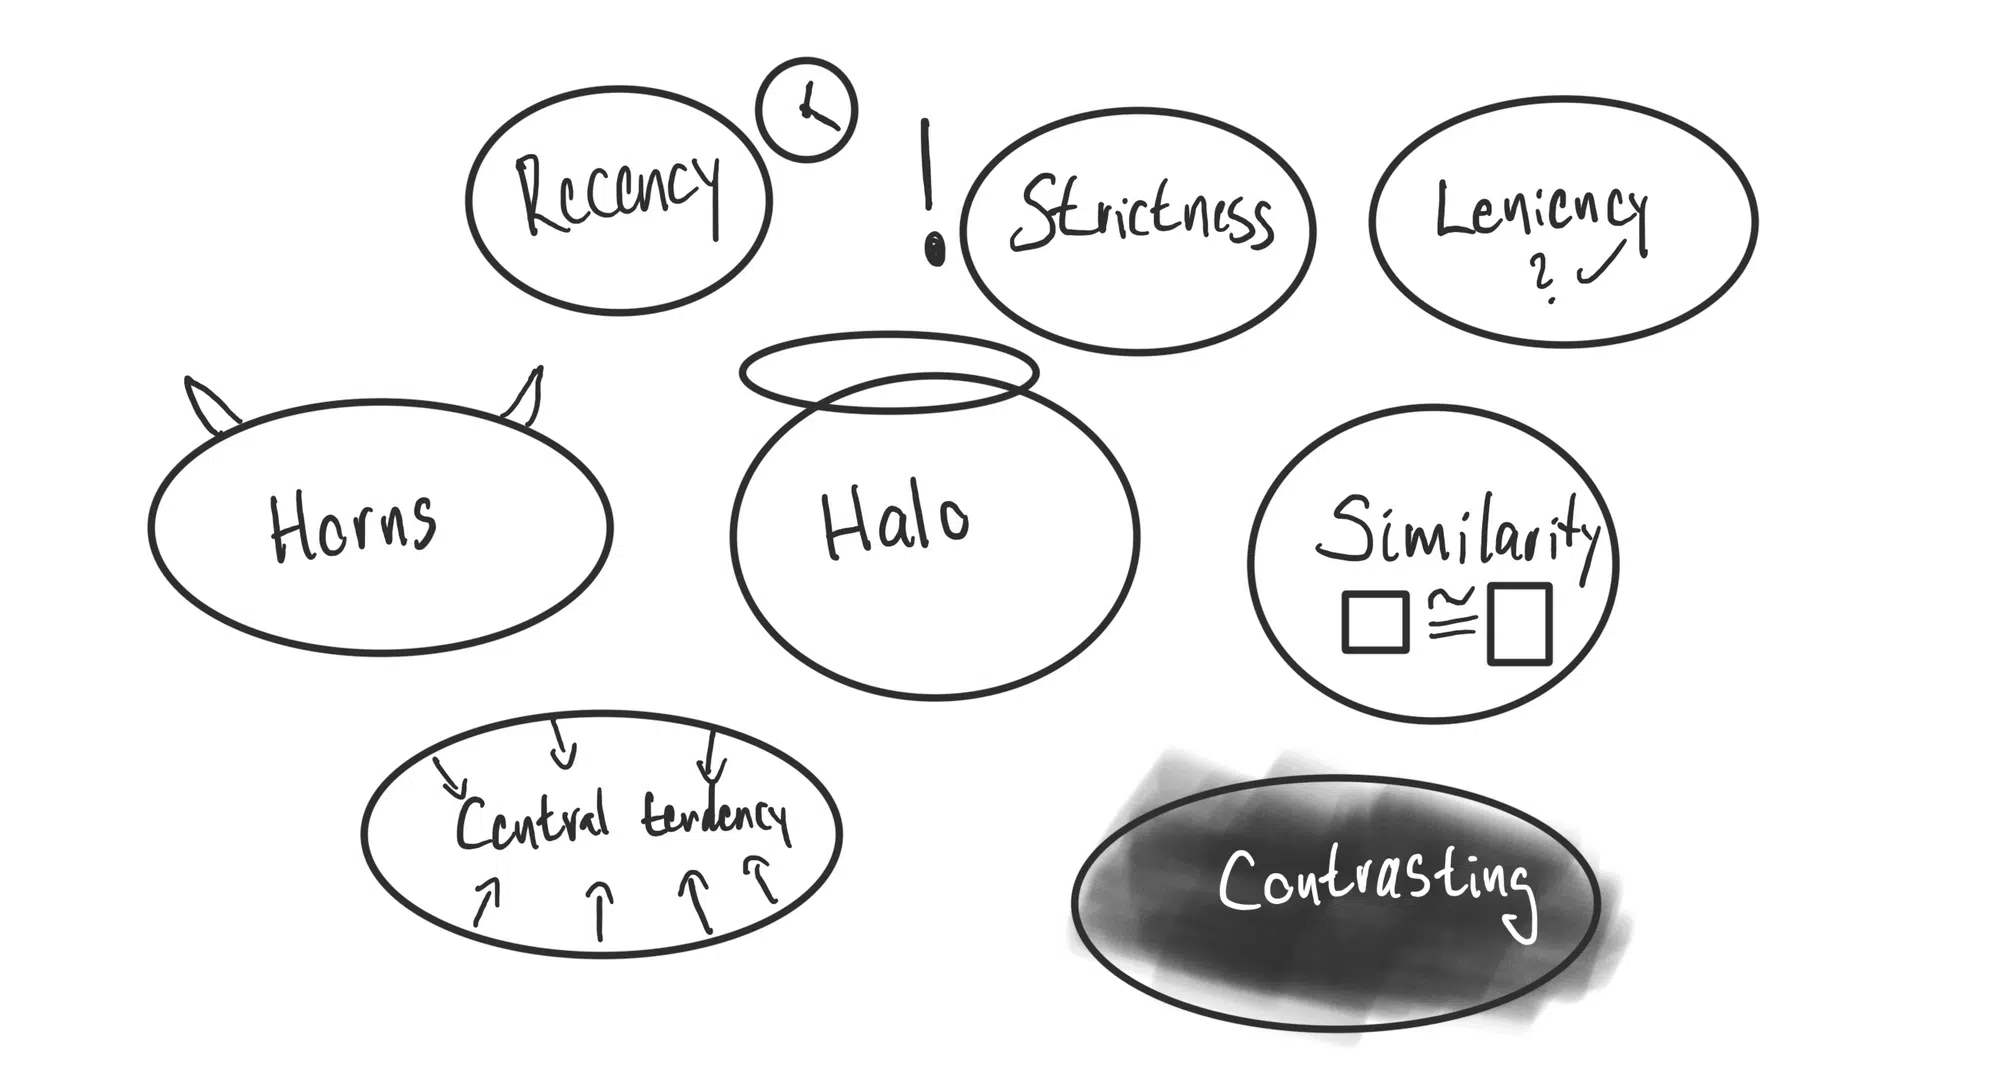 Recency
!
Strictness
Leniency
? ✓
Horns
Halo
Similarity
≅
Central tendency
Contrasting